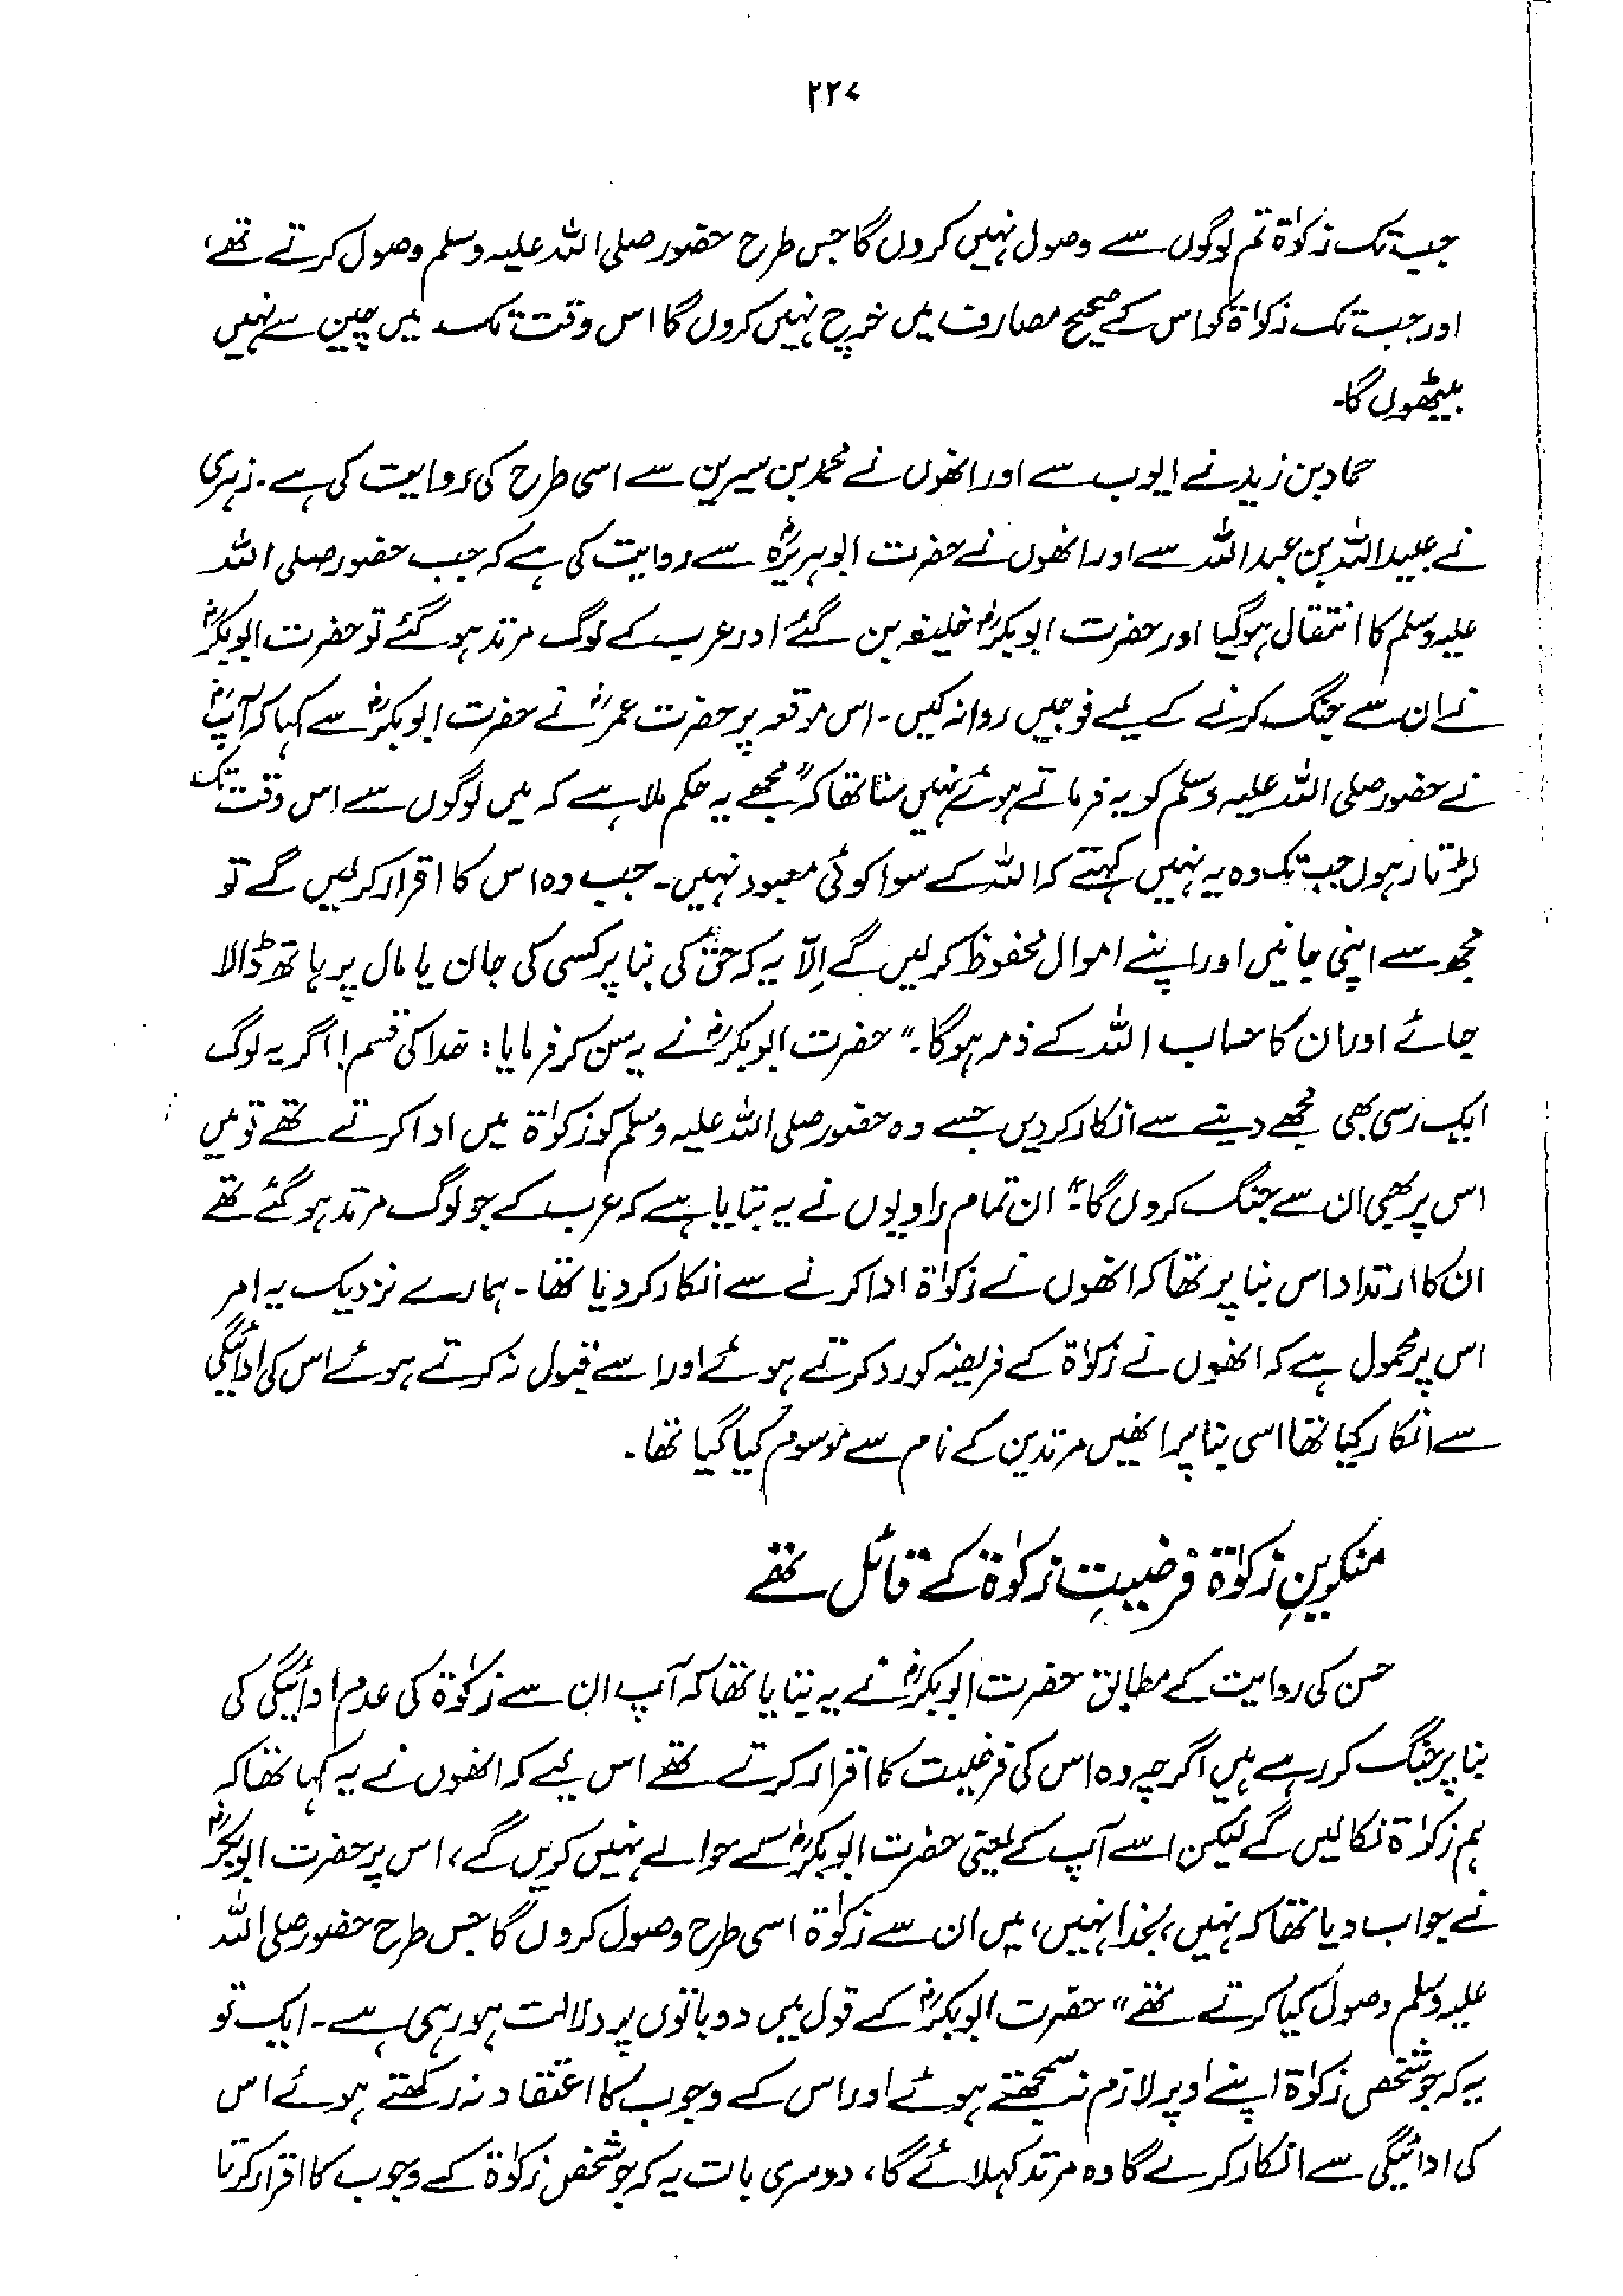 ۲۲۷
جب تک زکوٰۃ تم لوگوں سے وصول نہیں کروں گا جس طرح حضور صلی اللہ علیہ وسلم وصول کرتے تھے،
اور جب تک زکوٰۃ کو اس کے صحیح مصارف میں خرچ نہیں کروں گا اس وقت تک میں چین سے نہیں
بیٹھوں گا۔
حماد بن زید نے ایوب سے اور انھوں نے محمد بن سیرین سے اسی طرح کی روایت کی ہے۔ زہری
نے عبیداللہ بن عبداللہ سے اور انھوں نے حضرت ابوہریرہؓ سے روایت کی ہے کہ جب حضور صلی اللہ
علیہ وسلم کا انتقال ہوگیا اور حضرت ابوبکرؓ خلیفہ بن گئے اور عرب کے لوگ مرتد ہوگئے تو حضرت ابوبکرؓ
نے ان سے جنگ کرنے کے لیے فوجیں روانہ کیں۔ اس موقعہ پر حضرت عمرؓ نے حضرت ابوبکرؓ سے کہا کہ آپؓ
نے حضور صلی اللہ علیہ وسلم کو یہ فرماتے ہوئے نہیں سنا تھا کہ "مجھے یہ حکم ملا ہے کہ میں لوگوں سے اس وقت تک
لڑتا رہوں جب تک وہ یہ نہیں کہتے کہ اللہ کے سوا کوئی معبود نہیں۔ جب وہ اس کا اقرار کرلیں گے تو
مجھ سے اپنی جانیں اور اپنے اموال محفوظ کرلیں گے اِلّا یہ کہ حق کی بنا پر کسی کی جان یا مال پر ہاتھ ڈالا
جائے اور ان کا حساب اللہ کے ذمہ ہوگا۔" حضرت ابوبکرؓ نے یہ سن کر فرمایا: خدا کی قسم! اگر یہ لوگ
ایک رسی بھی مجھے دینے سے انکار کردیں جسے وہ حضور صلی اللہ علیہ وسلم کو زکوٰۃ میں ادا کرتے تھے تو میں
اس پر بھی ان سے جنگ کروں گا۔" ان تمام راویوں نے یہ بتایا ہے کہ عرب کے جو لوگ مرتد ہوگئے تھے
ان کا ارتداد اس بنا پر تھا کہ انھوں نے زکوٰۃ ادا کرنے سے انکار کردیا تھا۔ ہمارے نزدیک یہ امر
اس پر محمول ہے کہ انھوں نے زکوٰۃ کے فریضہ کو رد کرتے ہوئے اور اسے قبول نہ کرتے ہوئے اس کی ادائیگی
سے انکار کیا تھا اسی بنا پر انھیں مرتدین کے نام سے موسوم کیا گیا تھا۔
منکرینِ زکوٰۃ فرضیتِ زکوٰۃ کے قائل تھے
حسن کی روایت کے مطابق حضرت ابوبکرؓ نے یہ بتایا تھا کہ آپ ان سے زکوٰۃ کی عدم ادائیگی کی
بنا پر جنگ کر رہے ہیں اگرچہ وہ اس کی فرضیت کا اقرار کرتے تھے اس لیے کہ انھوں نے یہ کہا تھا کہ
ہم زکوٰۃ نکالیں گے لیکن اسے آپ کے یعنی حضرت ابوبکرؓ کے حوالے نہیں کریں گے، اس پر حضرت ابوبکرؓ
نے جواب دیا تھا کہ نہیں، بخدا نہیں، میں ان سے زکوٰۃ اسی طرح وصول کروں گا جس طرح حضور صلی اللہ
علیہ وسلم وصول کیا کرتے تھے" حضرت ابوبکرؓ کے قول میں دو باتوں پر دلالت ہو رہی ہے۔ ایک تو
یہ کہ جو شخص زکوٰۃ اپنے اوپر لازم نہ سمجھتے ہوئے اور اس کے وجوب کا اعتقاد نہ رکھتے ہوئے اس
کی ادائیگی سے انکار کرے گا وہ مرتد کہلائے گا، دوسری بات یہ کہ جو شخص زکوٰۃ کے وجوب کا اقرار کرتا